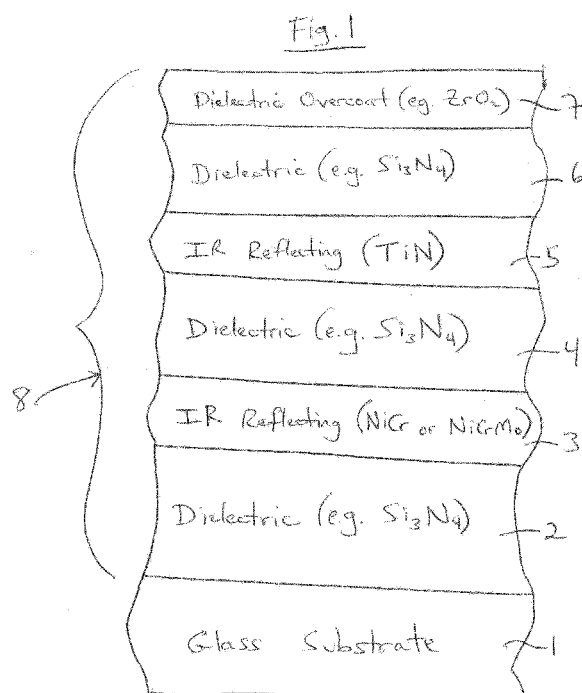 Fig. 1
Dielectric Overcoat (eg. ZrO₂) 7
Dielectric (e.g. Si₃N₄) 6
IR Reflecting (TiN) 5
Dielectric (e.g. Si₃N₄) 4
8
IR Reflecting (NiCr or NiCrMo) 3
Dielectric (e.g. Si₃N₄) 2
Glass Substrate 1